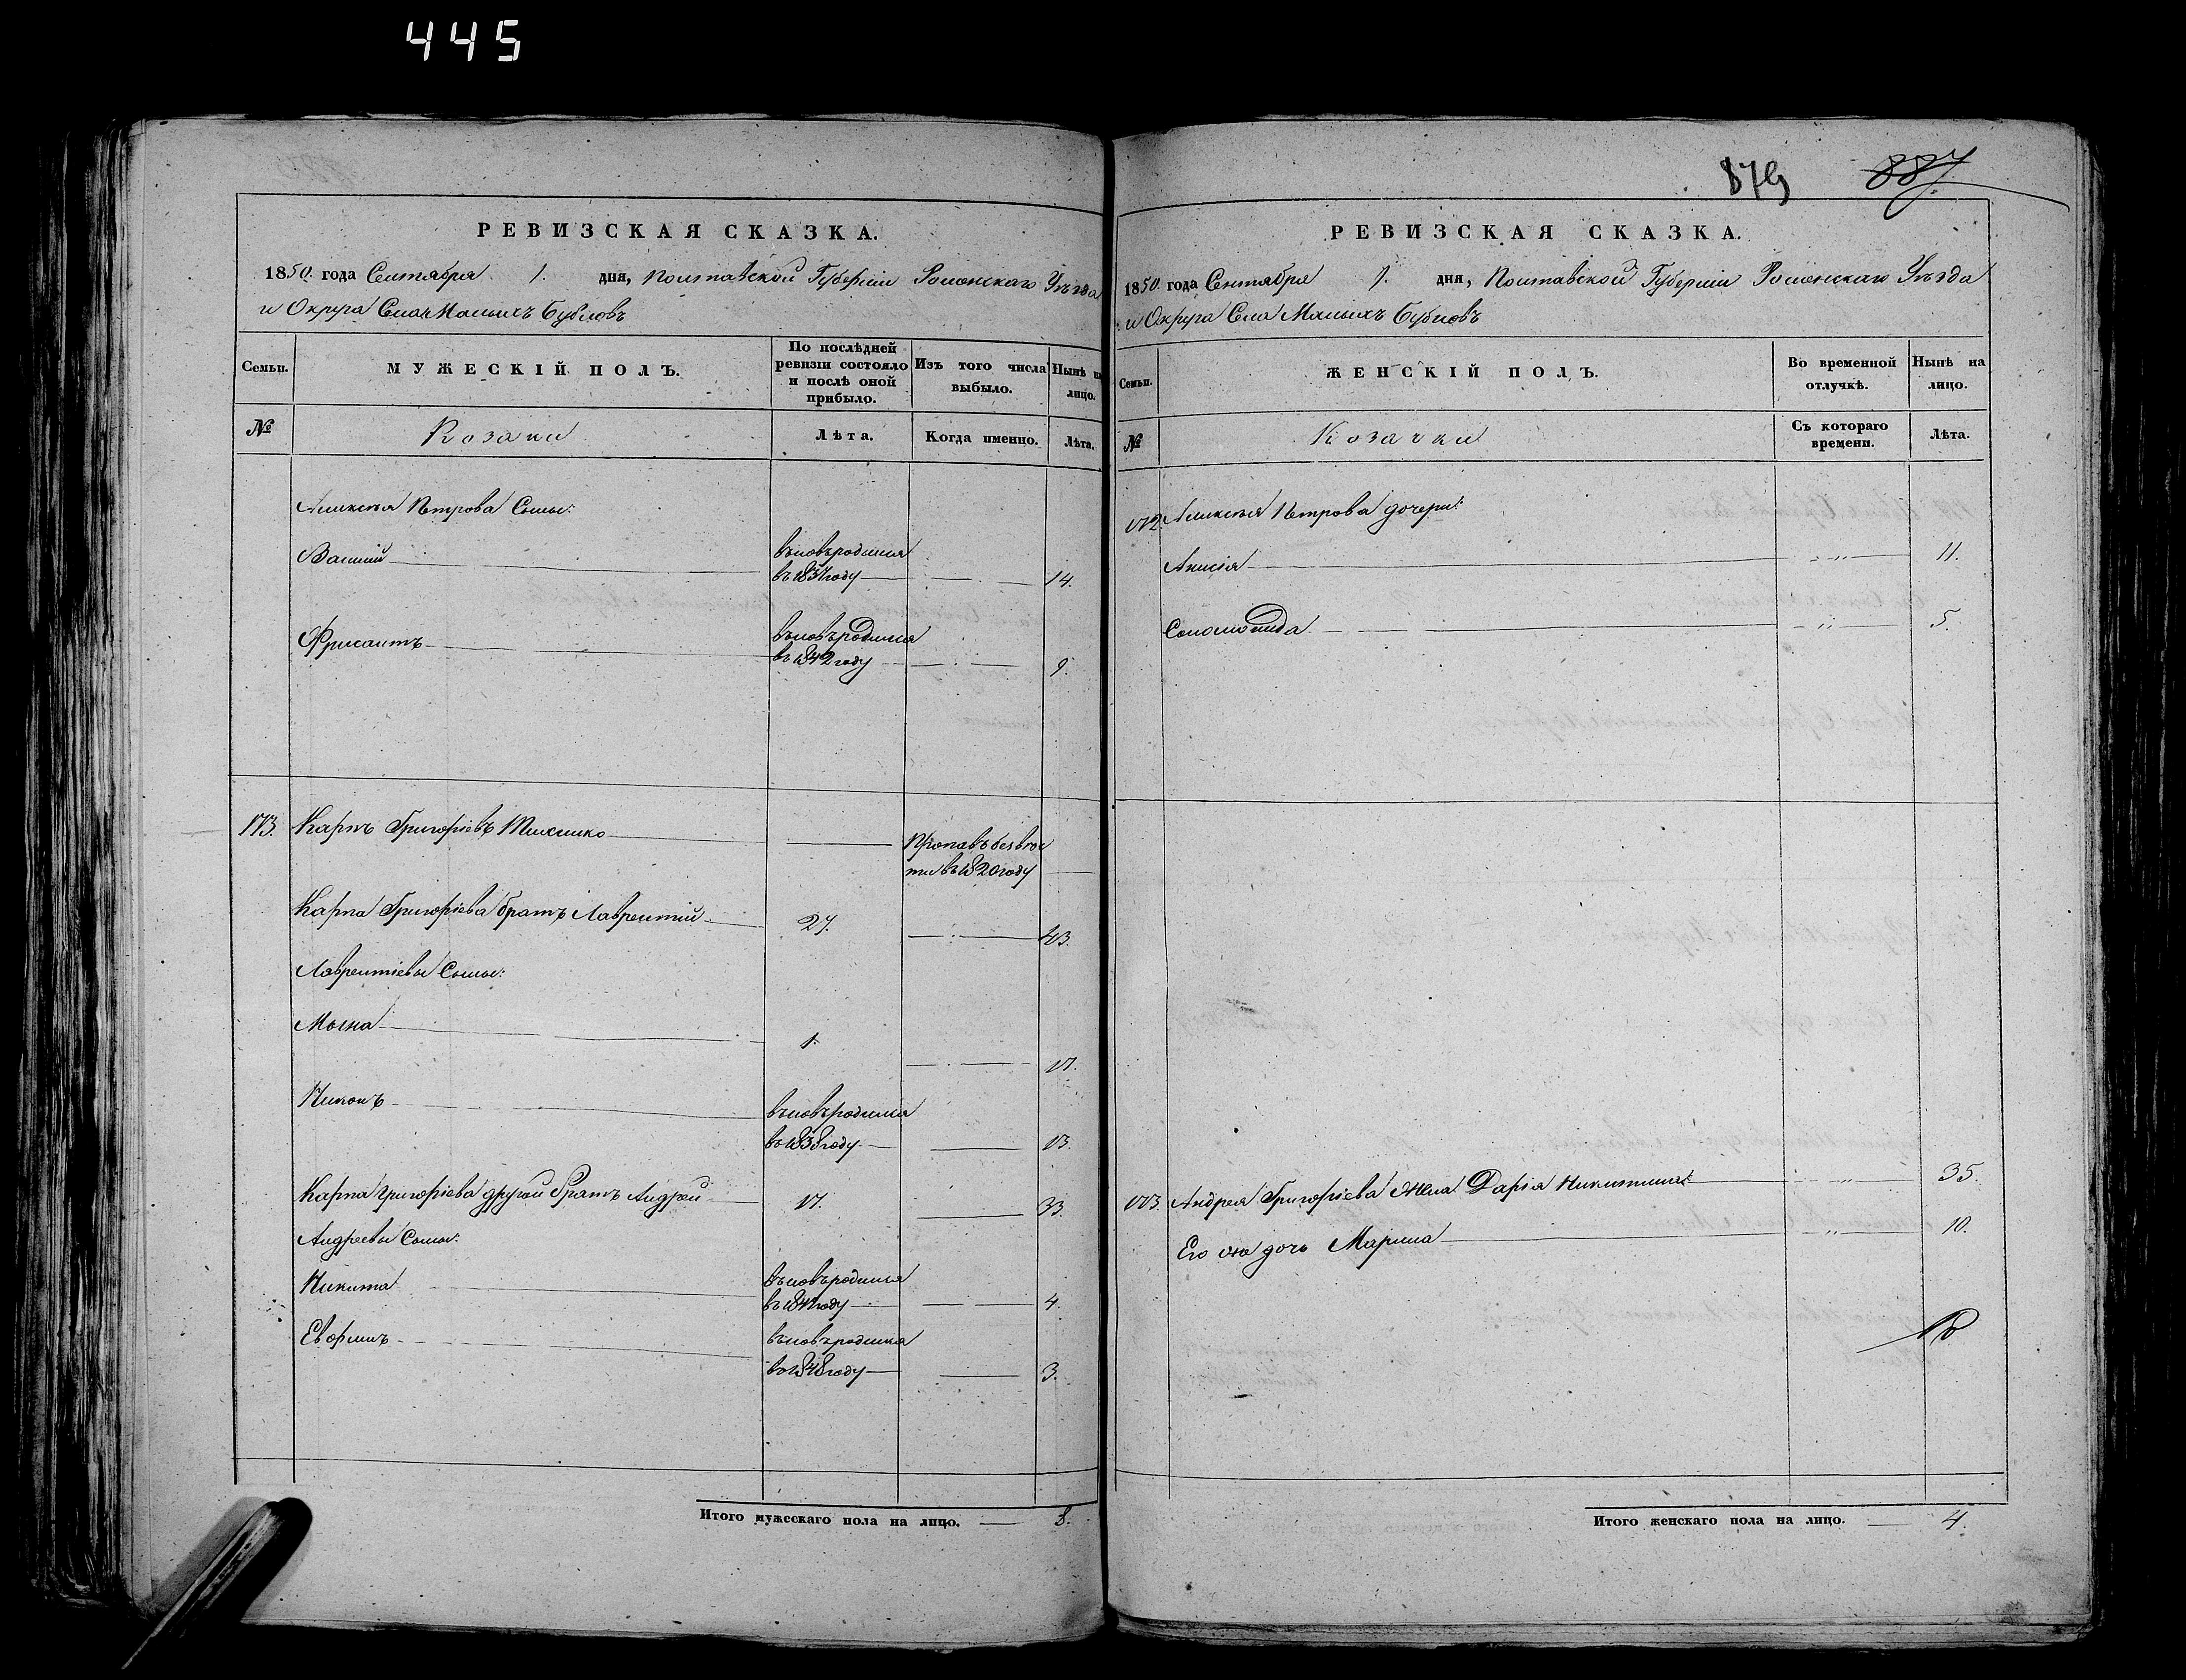 445
РЕВИЗСКАЯ СКАЗКА.
1850. года Сентября 1. дня, Полтавской Губерніи Роменскаго Уѣзда
и Округа Села Малыхъ Бубновъ
Семьи.
МУЖЕСКІЙ ПОЛЪ.
По послѣдней ревизіи состояло и послѣ оной прибыло.
Изъ того числа выбыло.
Нынѣ на лицо.
№
Козаки
Лѣта.
Когда именно.
Лѣта.
Алексѣя Петрова Сыны:
Василий
вновьродился
въ 1837 году 14.
вновьродился
въ 1842 году 9.
173. Карпъ Григоріевъ
Пропавъ безвѣс
ти въ 1820 году
Карпа Григоріева братъ Лаврентий 27. 43.
Лаврентіевы Сыны:
1. 17.
Никонъ
вновьродился
въ 1838 году 13.
Карпа Григоріева другой братъ Андрей 17. 33.
Андреевы Сыны:
Никита
вновьродился
въ 1847 году 4.
вновьродился
въ 1848 году 3.
Итого мужескаго пола на лицо. 8.
879 887
РЕВИЗСКАЯ СКАЗКА.
1850. года Сентября 1. дня, Полтавской Губерніи Роменскаго Уѣзда
и Округа Села Малыхъ Бубновъ
Семьи.
ЖЕНСКІЙ ПОЛЪ.
Во временной отлучкѣ.
Нынѣ на лицо.
№
Козачки
Съ котораго времени.
Лѣта.
172. Алексѣя Петрова дочери:
Анисія 11.
Соломонида 5.
173. Андрея Григоріева Жена Дарія Никитина 35.
Его дочь Марина 10.
Итого женскаго пола на лицо. 4.